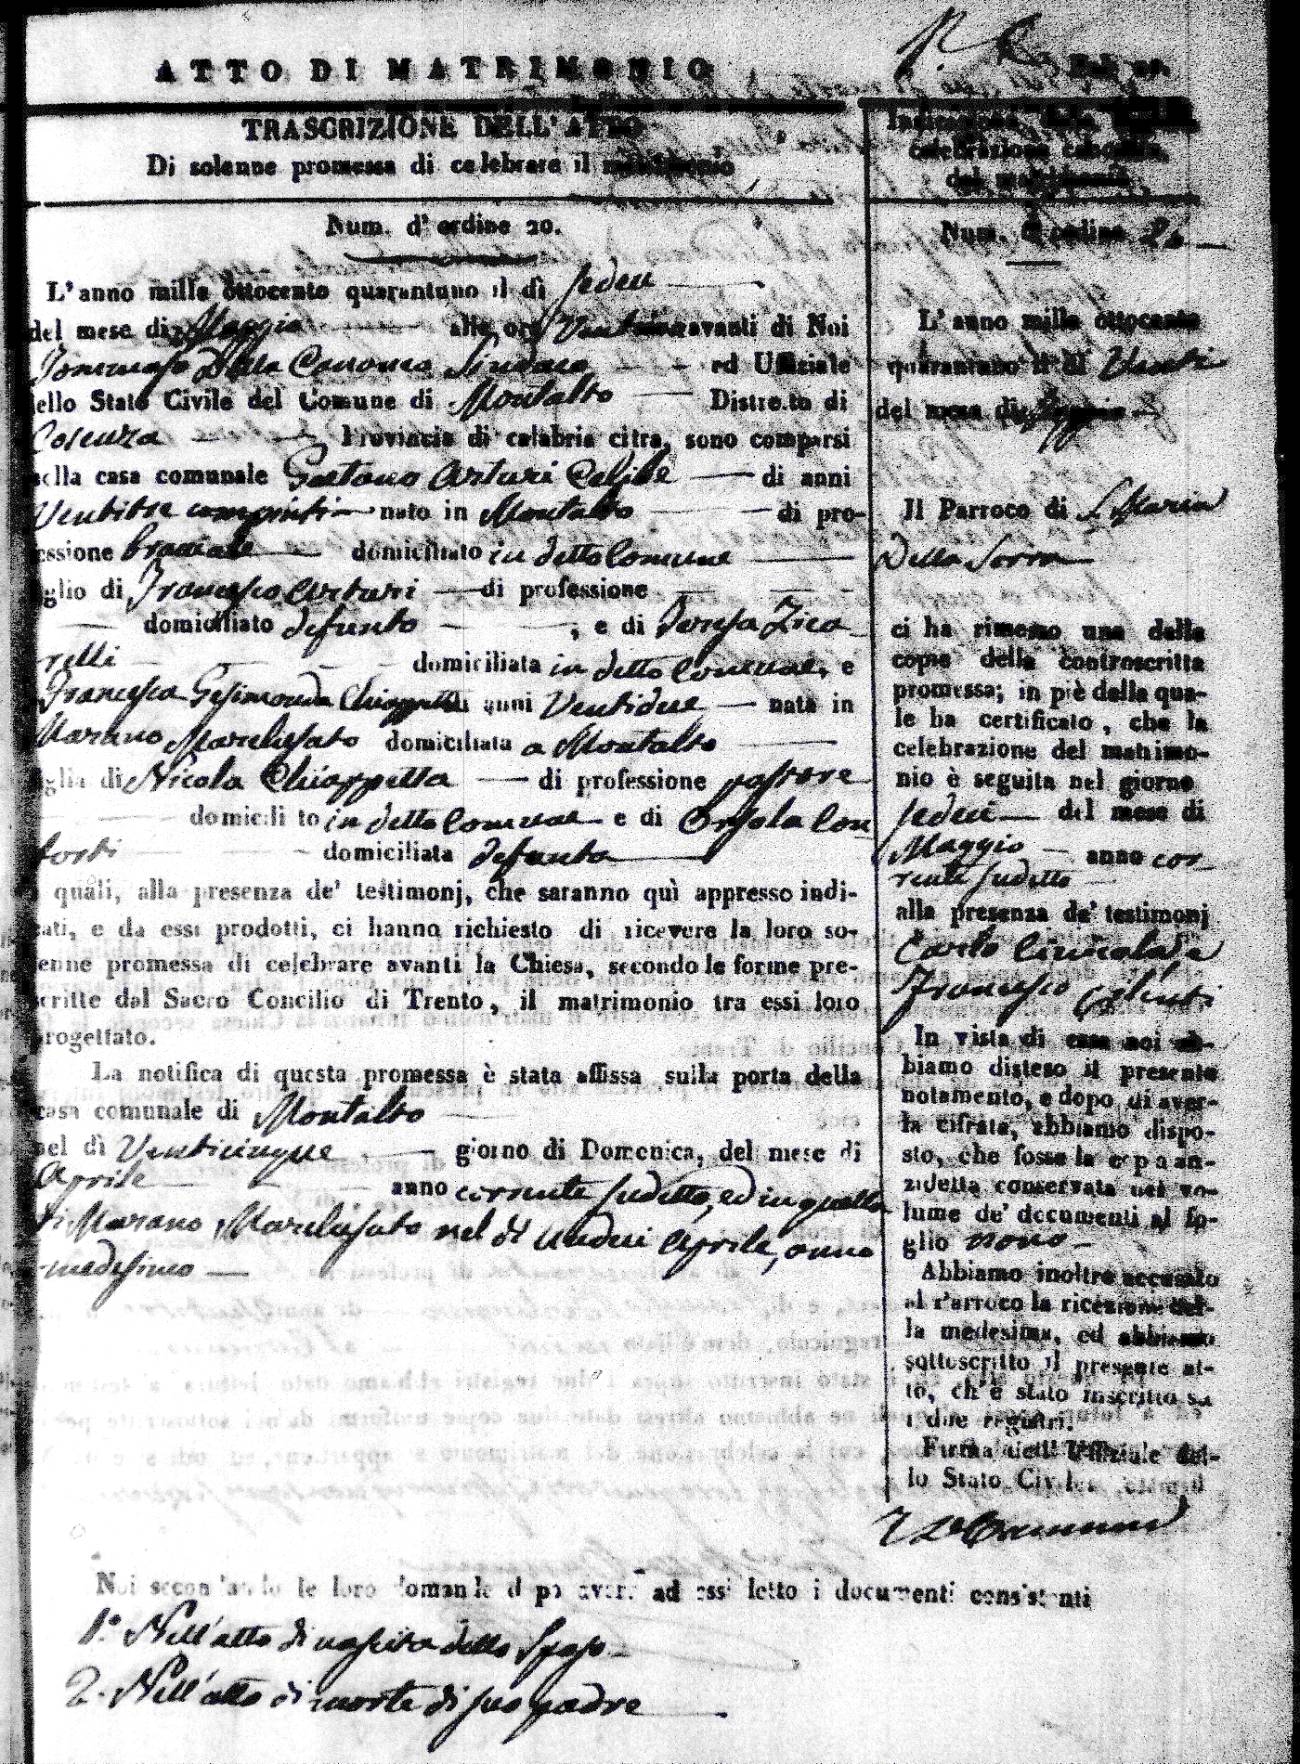 ATTO DI MATRIMONIO
TRASCRIZIONE DELL'ATTO
Di solenne promessa di celebrare il matrimonio
Num. d'ordine 20.
L'anno mille ottocento quarantuno il dì sedeci
del mese di Maggio alle ore avanti di Noi
Tommaso Sindaco ed Uffiziale
dello Stato Civile del Comune di Montalto Distretto di
Cosenza Provincia di calabria citra, sono comparsi
nella casa comunale Gaetano Arturi Celibe di anni
Ventitre compiuti nato in Montalto di pro-
essione bracciale domiciliato in detto Comune
iglio di Francesco Arturi di professione
domiciliato defunto, e di Teresa Zica
relli domiciliata in detto Comune, e
Francesca Gesimonda Chiappetta di anni Ventidue nata in
Marano Marchesato domiciliata a Montalto
iglia di Nicola Chiappetta di professione pastore
domicili to in detto Comune e di Orsola Con
forti domiciliata defunta
i quali, alla presenza de' testimonj, che saranno quì appresso indi-
cati, e da essi prodotti, ci hanno richiesto di ricevere la loro so-
lenne promessa di celebrare avanti la Chiesa, secondo le forme pre-
scritte dal Sacro Concilio di Trento, il matrimonio tra essi loro
progettato.
La notifica di questa promessa è stata affissa sulla porta della
casa comunale di Montalto
nel dì Venticinque giorno di Domenica, del mese di
Aprile anno corrente sudetto, ed in quella
di Marano Marchesato nel dì undeci Aprile, anno
medesimo
Noi secondando le loro domande dopo aver ad essi letto i documenti consistenti
1.° Nell'atto di nascita dello Sposo
2. Nell'atto di morte di suo padre
Indicazione della
celebrazione canonica
del matrimonio
Num. d'ordine 20
L'anno mille ottocento
quarantuno il dì Venti
del mese di Maggio
Il Parroco di S. Maria
Della Serra
ci ha rimesso una delle
copie della controscritta
promessa; in piè della qua-
le ha certificato, che la
celebrazione del matrimo-
nio è seguita nel giorno
sedeci del mese di
Maggio anno cor-
rente sudetto
alla presenza de' testimonj
Carlo e
Francesco
In vista di essa noi ab-
biamo disteso il presente
notamento, e dopo di aver-
la cifrata, abbiamo dispo-
sto, che fosse la copia an-
zidetta conservata nel vo-
lume de' documenti al fo-
glio nono
Abbiamo inoltre accusato
al Parroco la ricezione del-
la medesima, ed abbiamo
sottoscritto il presente at-
to, ch'è stato inscritto su
i due registri.
Firma dell'Uffiziale del-
lo Stato Civile